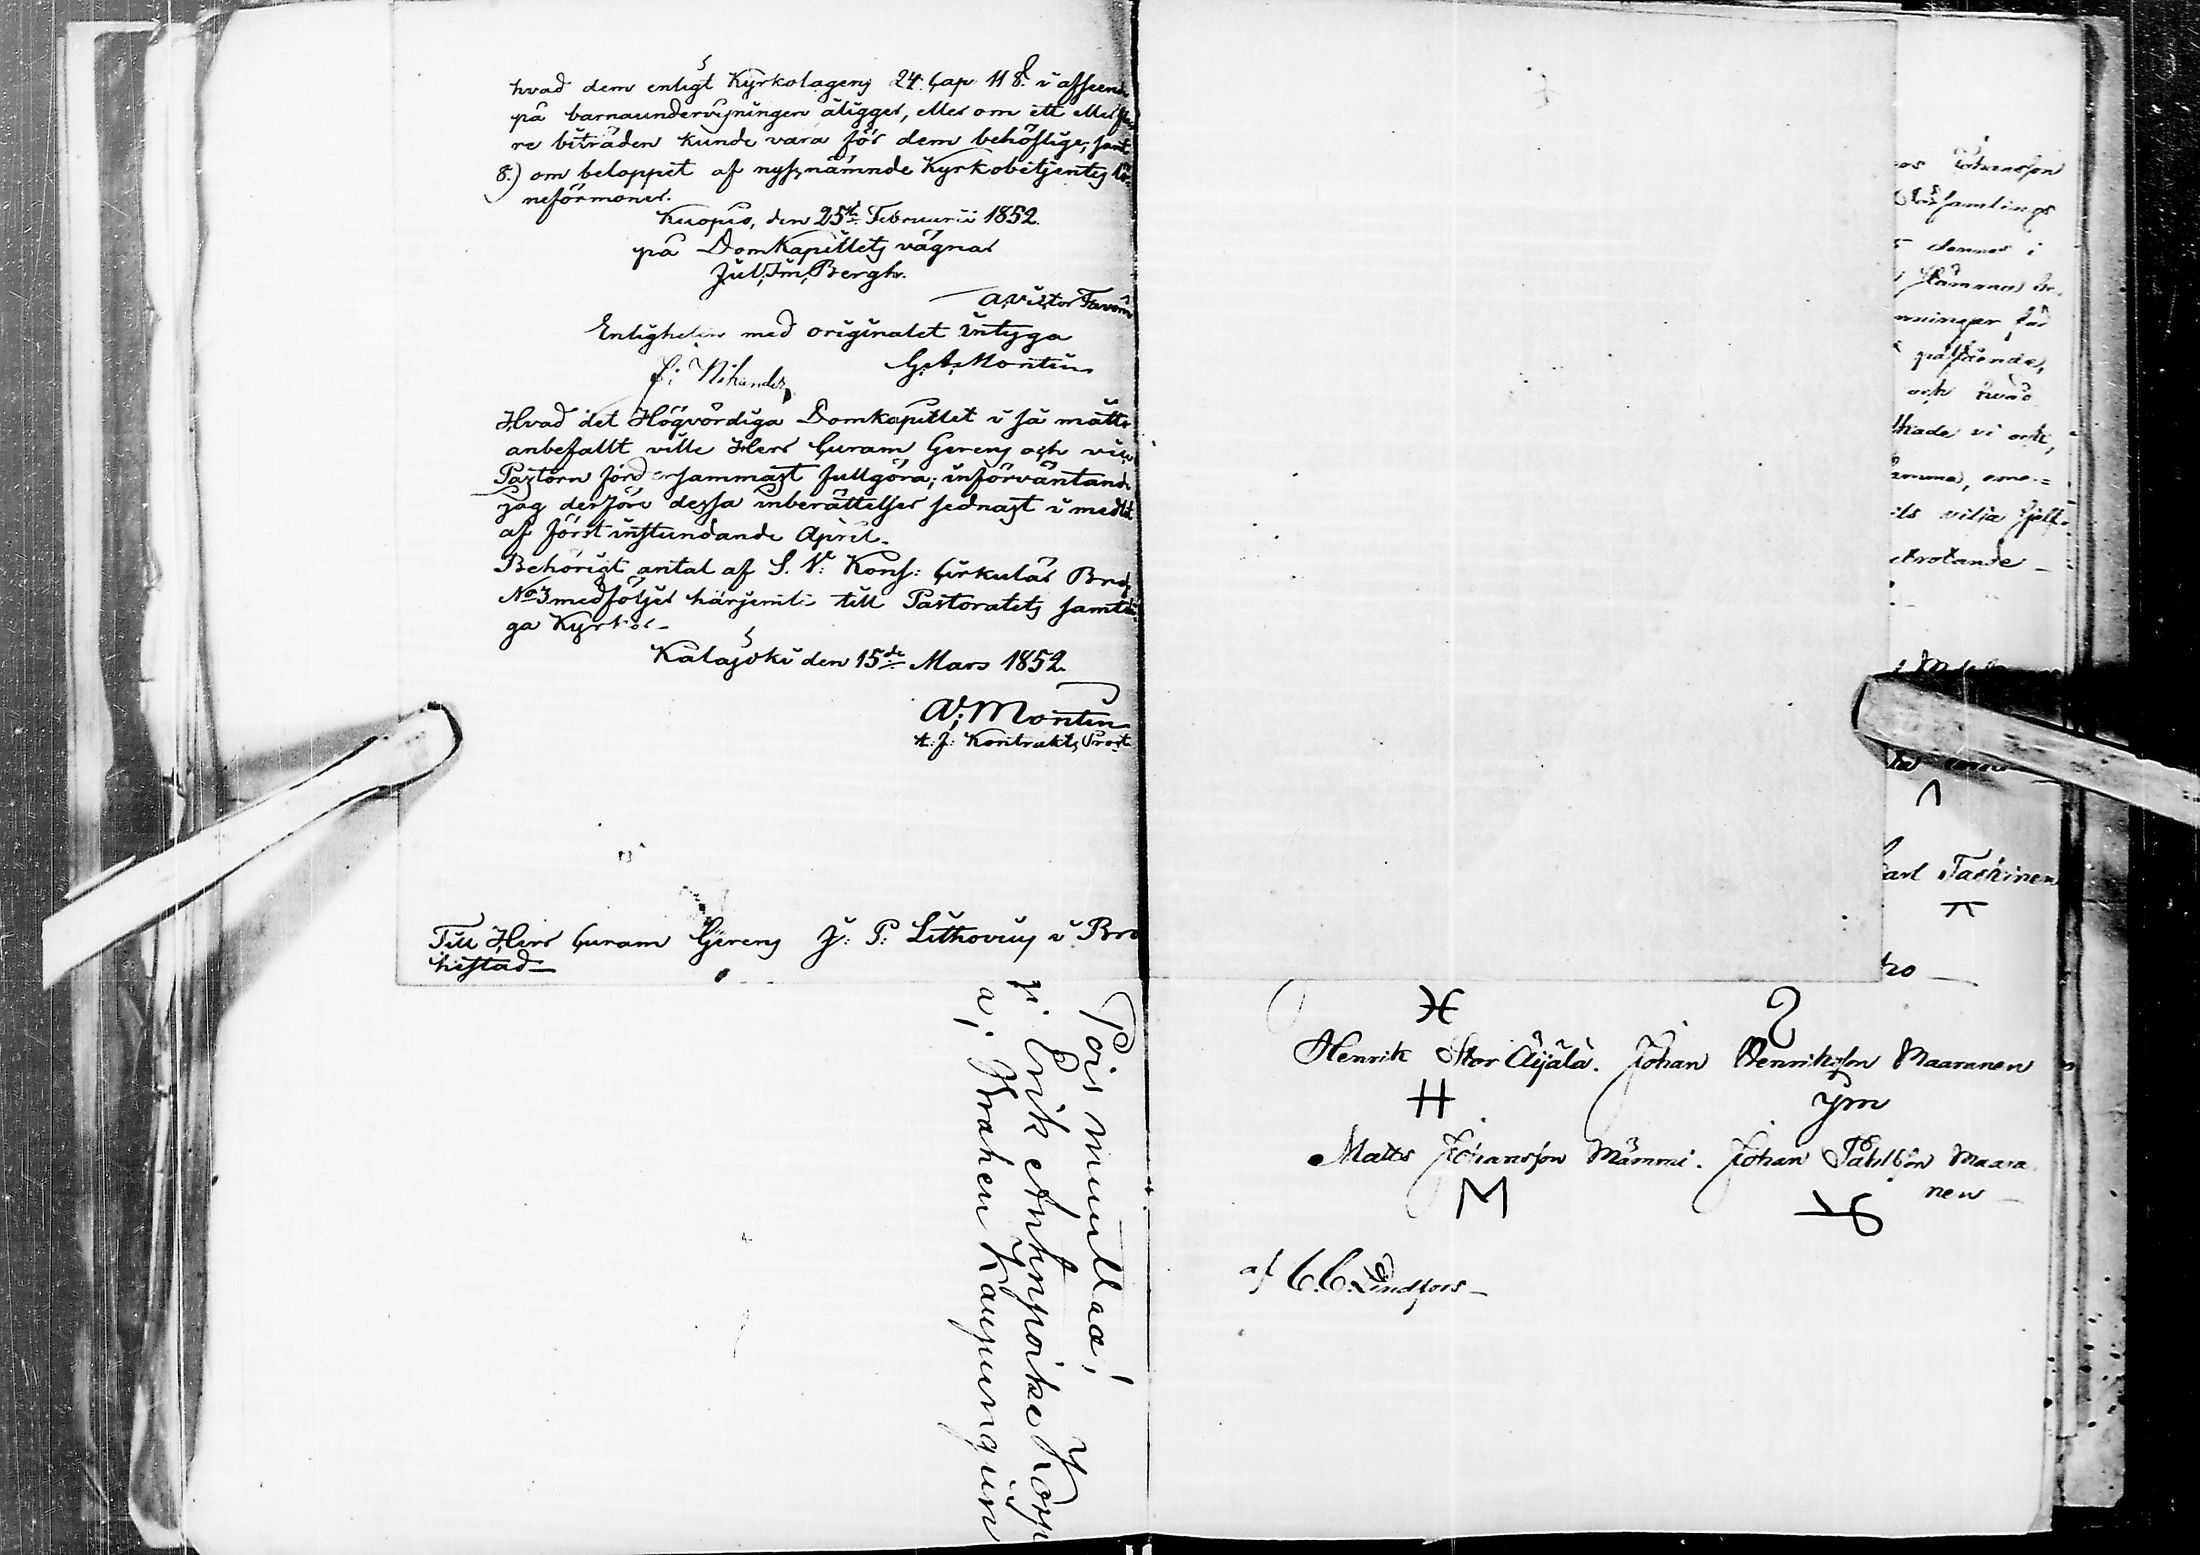 hvad dem enligt Kyrkolagens 24. Cap 11 §. i afseende
på barnaundervisningen åligger, eller om ett eller fle
re biträden kunde vara för dem behöflige; samt
8.) om beloppet af nyssnämnde Kyrkobetjentes lö
neförmoner.
Kuopio, den 25te Februarii 1852.
på Domkapitlets vägnar
Jul. Im. Bergh.
Enligheten med originalet intyga
G. A. Montin
Nikander
Hvad det Högvördiga Domkapitlet i så måtto
anbefallt ville Herr Curam Gerens och vice
Pastorn fordersammast fullgöra; införväntande
jag derföre dessa inberättelser sednast i medlet
af först instundande April.
Behörigt antal af S. N. Kons: Cirkulär Bref
No 3 medföljer härjemte till Pastoratets samtli
ga Kyrkor
Kalajoki den 15de Mars 1852
Montin
t. f. Kontrakts Prost
Till Herr Curam Gerens J: P: Lithovius i Bra
hestad
Pois muullaa! y
j: Erik Anhnpoika Kopp
a; Brahen Kaupungiin
os Johansson
samlings
dennes i
samma
påstående,
och hvad
vi ock,
vilja
carl Taskinen
ko
Henrik Stor Äijälä. Johan Henriksson Maaranen
H ym
Matts Johansson Mämmi. Johan Påhlsson Maara
nen
M
af C. C. Lindfors